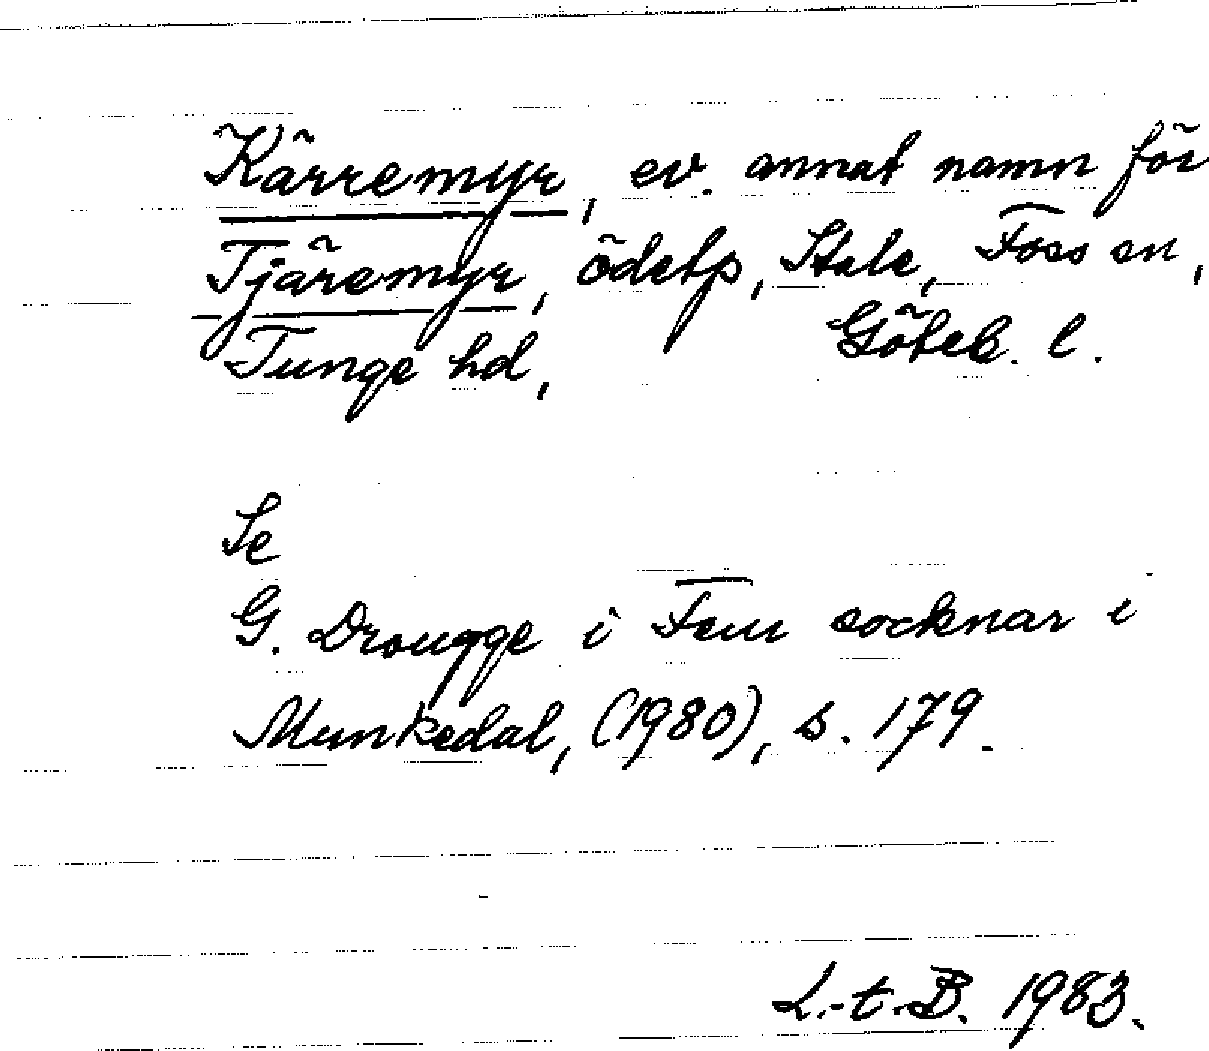 Kärremyr, ev. annat namn för
Tjäremyr, ödetp, Stale, Foss sn,
Tunge hd, Göteb. l.
Se
G. Drougge i Fem socknar i
Munkedal, (1980), s. 179.
L.-t.-B. 1983.